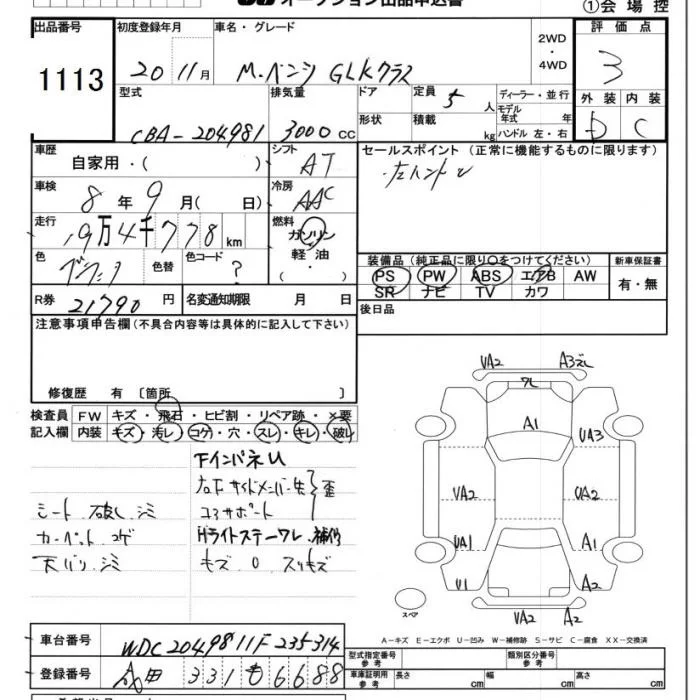 オークション出品申込書
①会場控
出品番号 1113
初度登録年月 20 11月
車名・グレード M.ベンツ GLKクラス
2WD・4WD
評価点 3
外装 D 内装 C
型式 CBA-204981
排気量 3000 cc
ドア
形状
定員 5人
積載 kg
ディーラー・並行
モデル年式 年
ハンドル 左・右
車歴 自家用・( )
シフト AT
セールスポイント (正常に機能するものに限ります)
左ハンドル
車検 8年9月( 日)
冷房 AAC
走行 19万4千778km
燃料 ガソリン・軽油・( )
色
色替
色コード ?
装備品 (純正品に限り○をつけてください)
新車保証書
PS PW ABS エアB AW
SR ナビ TV カワ
有・無
R券 21790円
名変通知期限 月 日
後日品
注意事項申告欄 (不具合内容等は具体的に記入して下さい)
修復歴 有 〔箇所 〕
検査員記入欄
FW キズ・飛石・ヒビ割・リペア跡・×要
内装 キズ・汚レ・コゲ・穴・スレ・キレ・破レ
下インパネU
右左下サイドメンバー先 歪
シート 破レ シミ
コアサポート
カーペット コゲ
Hライトステーワレ・補修
天バリ シミ
キズ U スリキズ
UA2 A3ズレ
ワレ
A1
UA3
UA2 UA2
UA1 A1
U1 A2
UA2 A2
スペア
A-キズ E-エクボ U-凹み W-補修跡 S-サビ C-腐食 XX-交換済
車台番号 WDC2049811F235314
登録番号 331も6688
型式指定番号 参考
類別区分番号 参考
車庫証明用 参考
長さ cm 幅 cm 高さ cm